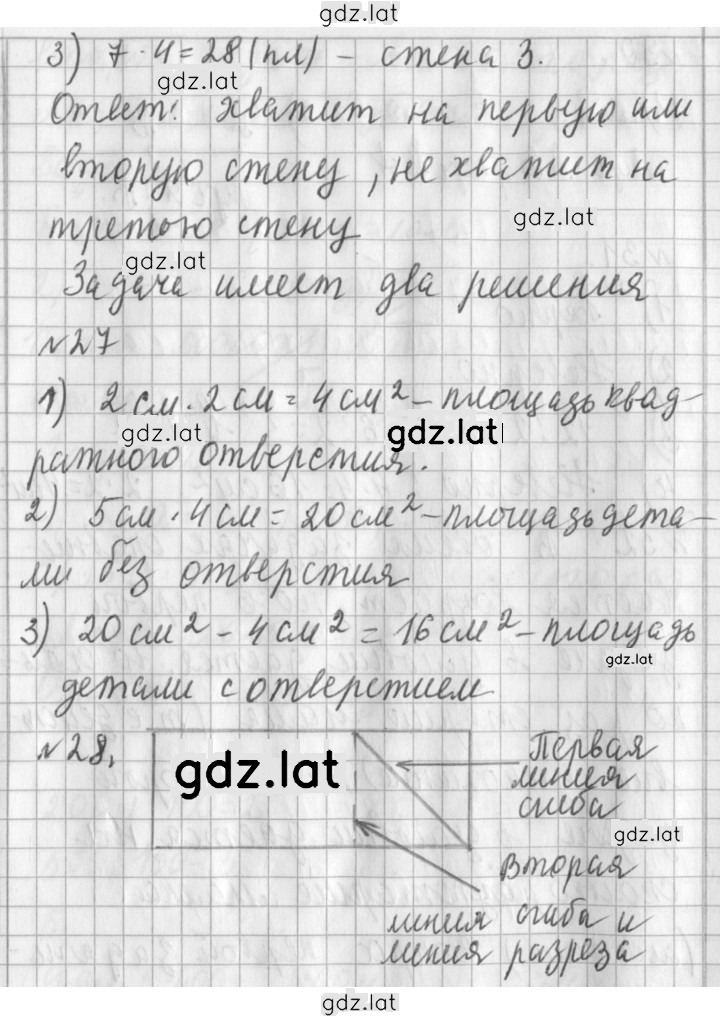 gdz.lat
3) 7 · 4 = 28 (пл) – стена 3.
gdz.lat
Ответ: хватит на первую или
вторую стену, не хватит на
gdz.lat
третью стену
gdz.lat
Задача имеет два решения
№27
1) 2 см · 2 см = 4 см² – площадь квад-
gdz.lat gdz.lat
ратного отверстия.
2) 5 см · 4 см = 20 см² – площадь дета-
ли без отверстия
3) 20 см² – 4 см² = 16 см² – площадь
gdz.lat
детали с отверстием
№28.
gdz.lat
Первая
линия
сгиба
gdz.lat
Вторая
линия сгиба и
линия разреза
gdz.lat